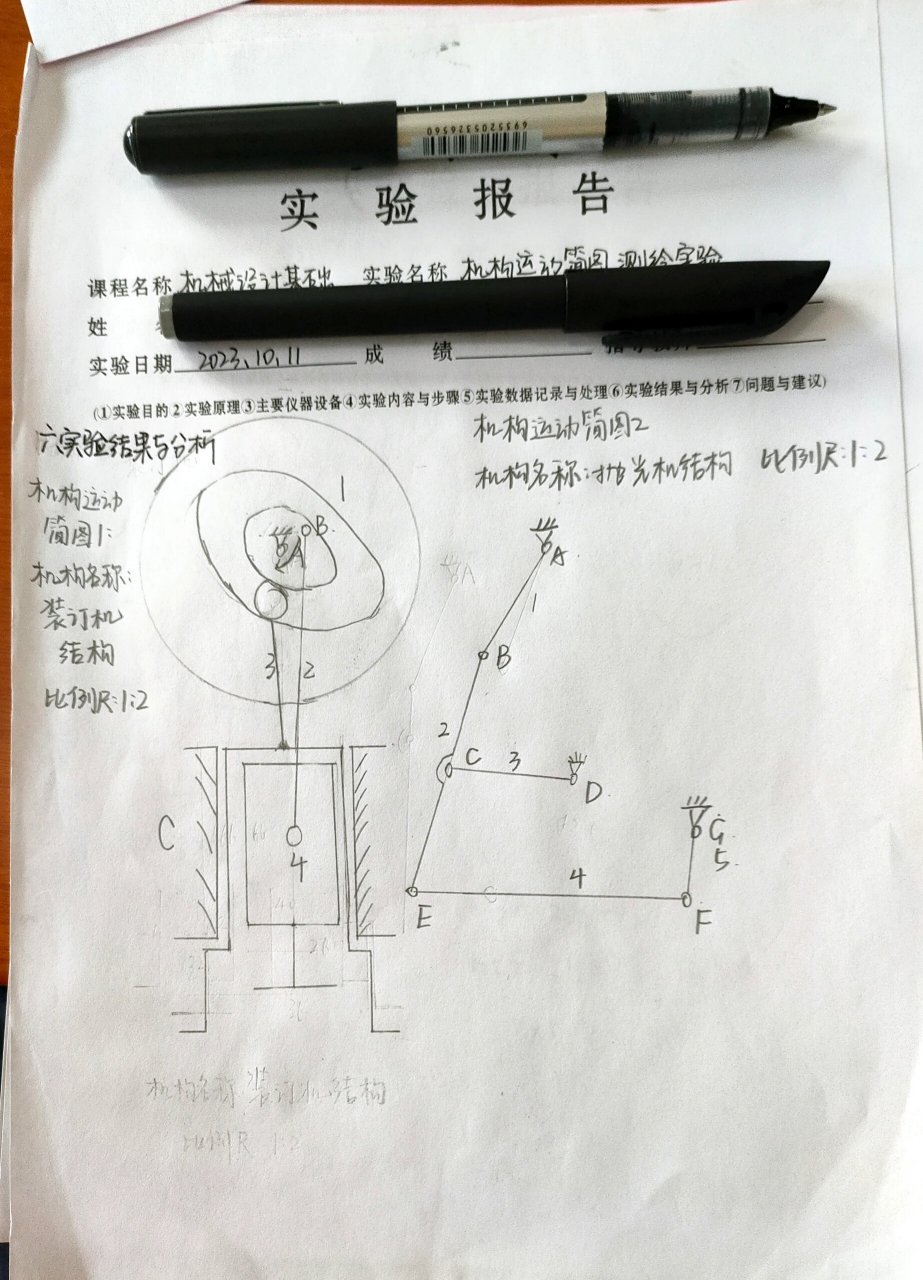 6935205326560
实 验 报 告
课程名称 机械设计基础 实验名称 机构运动简图测绘实验
姓
实验日期 2023.10.11 成 绩
(①实验目的②实验原理③主要仪器设备④实验内容与步骤⑤实验数据记录与处理⑥实验结果与分析⑦问题与建议)
六实验结果与分析
机构运动
简图1:
机构名称:
装订机
结构
比例尺:1:2
1
B
A
3
2
C
4
26
机构名称 装订机结构
比例尺 1:2
机构运动简图2
机构名称:抛光机结构 比例尺:1:2
A
A
1
B
2
C
3
D
G
5
4
E
F